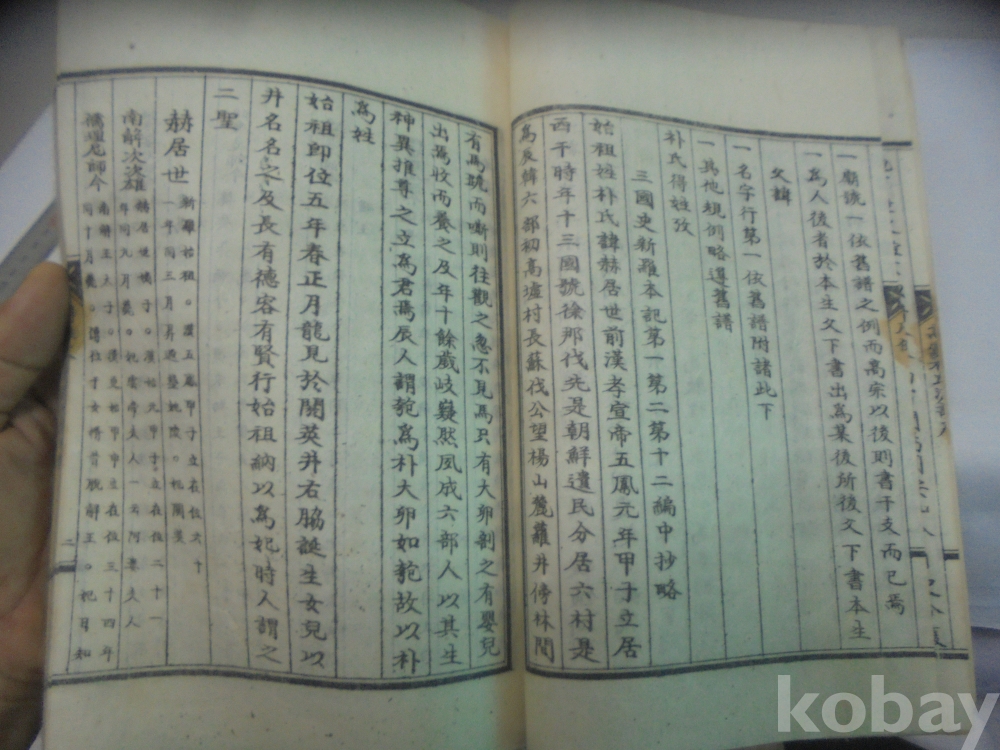 一廟號一依舊譜之例而高宗以後則書干支而已焉
一爲人後者於本生父下書出爲某後所後父下書本生
父諱
一名字行第一依舊譜附諸此下
一其他規例略遵舊譜
朴氏得姓攷
三國史新羅本記第一第二第十二編中抄略
始祖姓朴氏諱赫居世前漢孝宣帝五鳳元年甲子立居
西干時年十三國號徐那伐先是朝鮮遺民分居六村是
爲辰韓六部初高墟村長蘇伐公望楊山麓蘿井傍林間
有馬號而嘶則往觀之忽不見馬只有大卵剖之有嬰兒
出焉收而養之及年十餘歲岐嶷然夙成六部人以其生
神異推尊之立爲君焉辰人謂瓠爲朴大卵如瓠故以朴
爲姓
始祖卽位五年春正月龍見於閼英井右脇誕生女兒以
井名名之及長有德容有賢行始祖納以爲妃時人謂之
二聖
赫居世 新羅始祖。漢五鳳甲子立在位六十
一年同三月昇遐 葬蛇陵。妃閼英
南解次次雄 赫居世嫡子。漢元始甲子立在位二十一
年同九月薨。妃雲帝夫人一云阿婁夫人
儒理尼師今 南解王太子。漢更始甲申立在位三十四年
同十月薨。傳位于女壻昔脫解王。妃月知
二
kobay